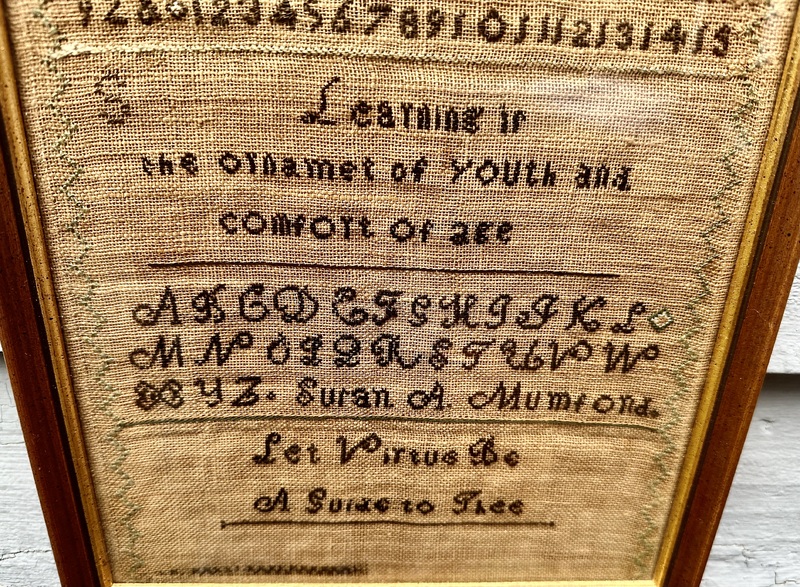 y z & 1 2 3 4 5 6 7 8 9 10 11 12 13 14 15
S Learning is
the ornamet of youth and
comfort of age
A B C D E F G H I J K L
M N O P Q R S T U V W
X Y Z. Susan A. Mumford.
Let Virtue Be
A Guide to Thee